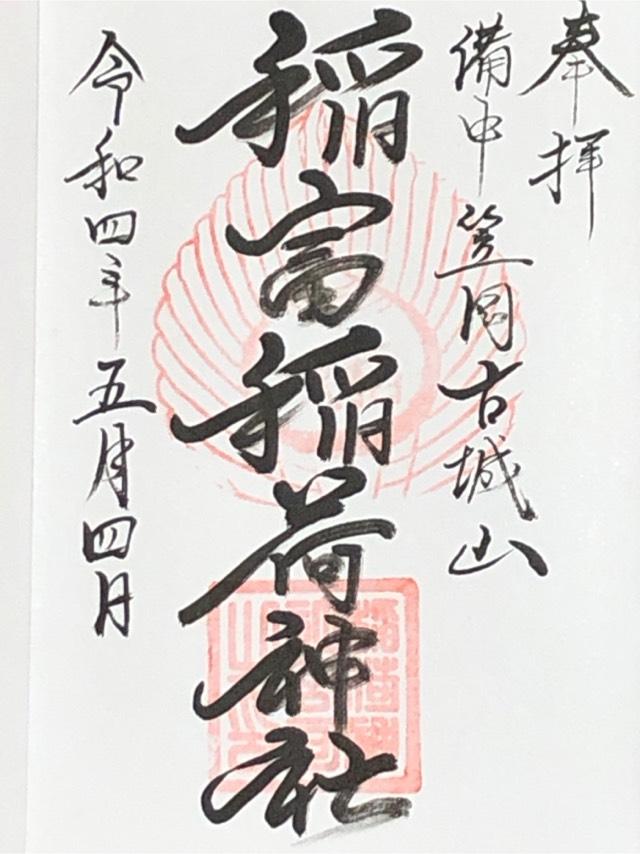 奉拝
備中笠岡古城山
稲富稲荷神社
令和四年五月四日